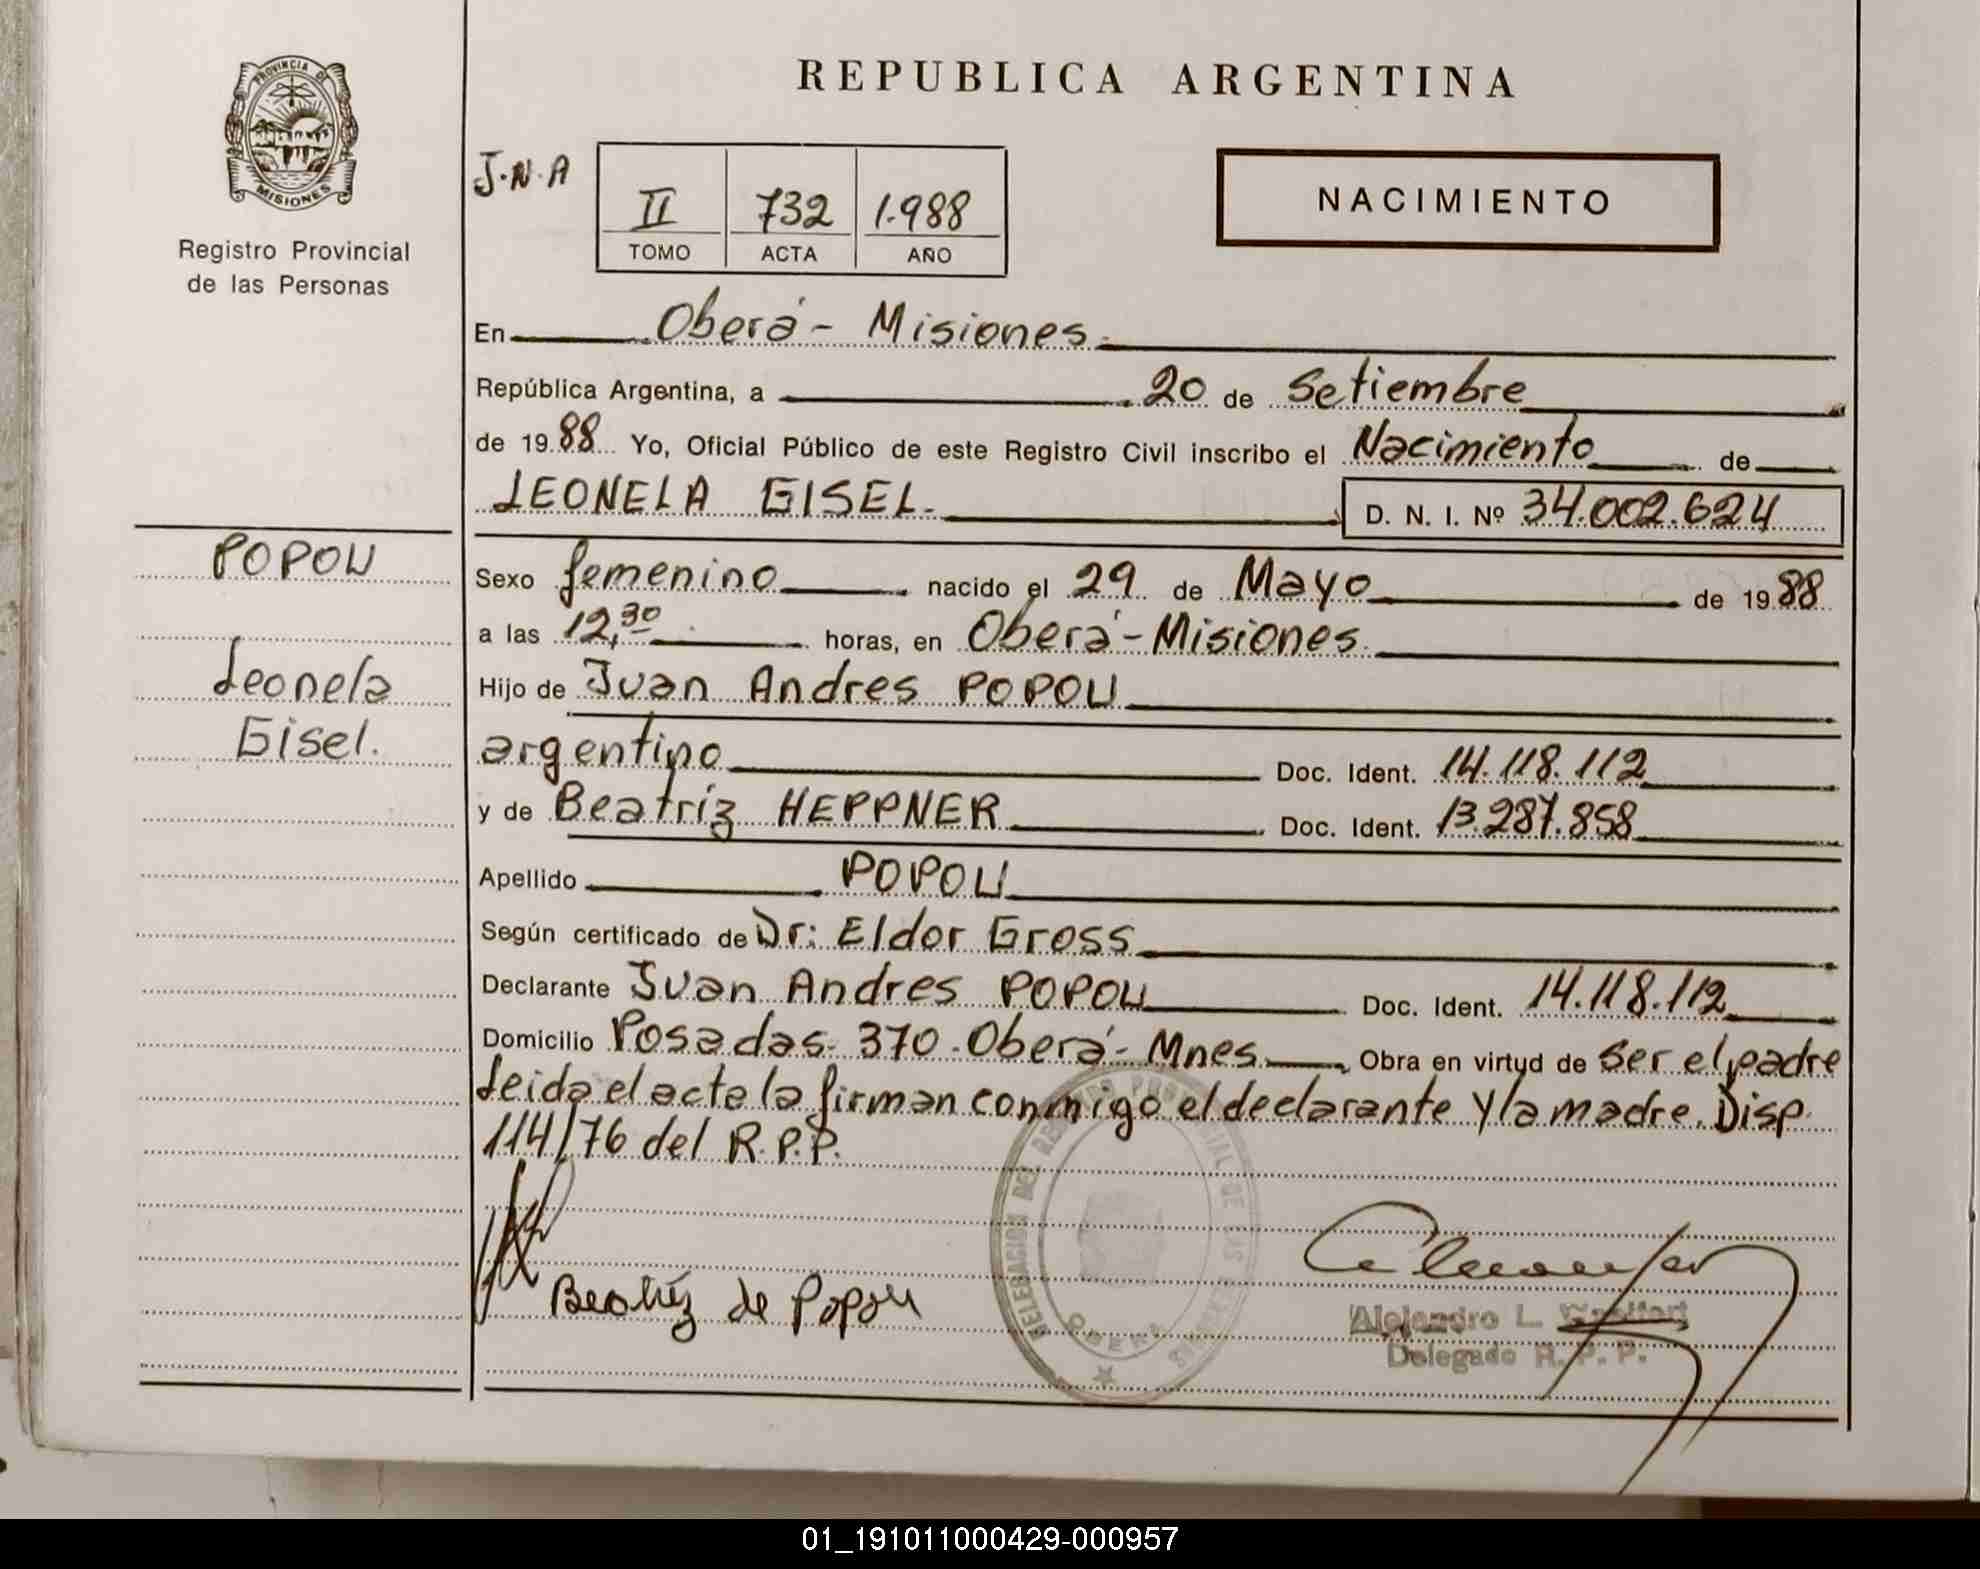 REPUBLICA ARGENTINA
PROVINCIA DE
MISIONES
Registro Provincial
de las Personas
J.N.A
II 732 1.988
TOMO ACTA AÑO
NACIMIENTO
En Oberá - Misiones
República Argentina, a 20 de Setiembre
de 1988 Yo, Oficial Público de este Registro Civil inscribo el Nacimiento de
LEONELA GISEL. D. N. I. Nº 34.002.624
POPOU
Leonela
Gisel.
Sexo femenino nacido el 29 de Mayo de 1988
a las 12,30 horas, en Oberá - Misiones.
Hijo de Juan Andres POPOU
argentino Doc. Ident. 14.118.112
y de Beatríz HEPPNER Doc. Ident. 13.287.858
Apellido POPOU
Según certificado de Dr: Eldor Gross
Declarante Juan Andres POPOU Doc. Ident. 14.118.112
Domicilio Posadas. 370. Oberá - Mnes. Obra en virtud de ser el padre
Leida el acta la firman conmigo el declarante y la madre. Disp.
114/76 del R.P.P.
DELEGACION DEL REGISTRO DE LAS PERSONAS
OBERA
Beatríz de Popou
Alejandro L.
Delegado R. P. P.
01_191011000429-000957